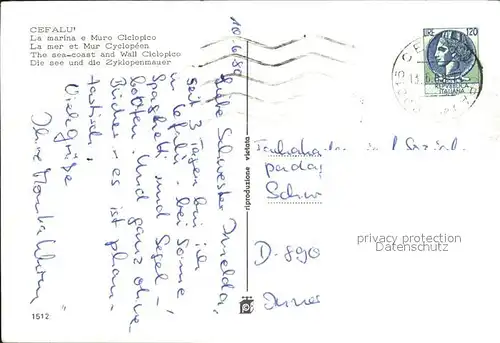 CEFALU'
La marina e Muro Ciclopico
La mer et Mur Cyclopéen
The sea-coast and Wall Ciclopico
Die see und die Zyklopenmauer
10.6.80
Liebe Schwester Imelda,
seit 3 Tagen bin ich
in Cefalu - bei Sonne
Spaghetti und Segel-
booten. Und ganz ohne
Bücher - es ist phan-
tastisch!
Viele Grüße
Ihre
1512
riproduzione vietata
LIRE 120
REPVBBLICA
ITALIANA
13.6.80
CE
90015
päda
Schw
D-890
privacy protection
Datenschutz